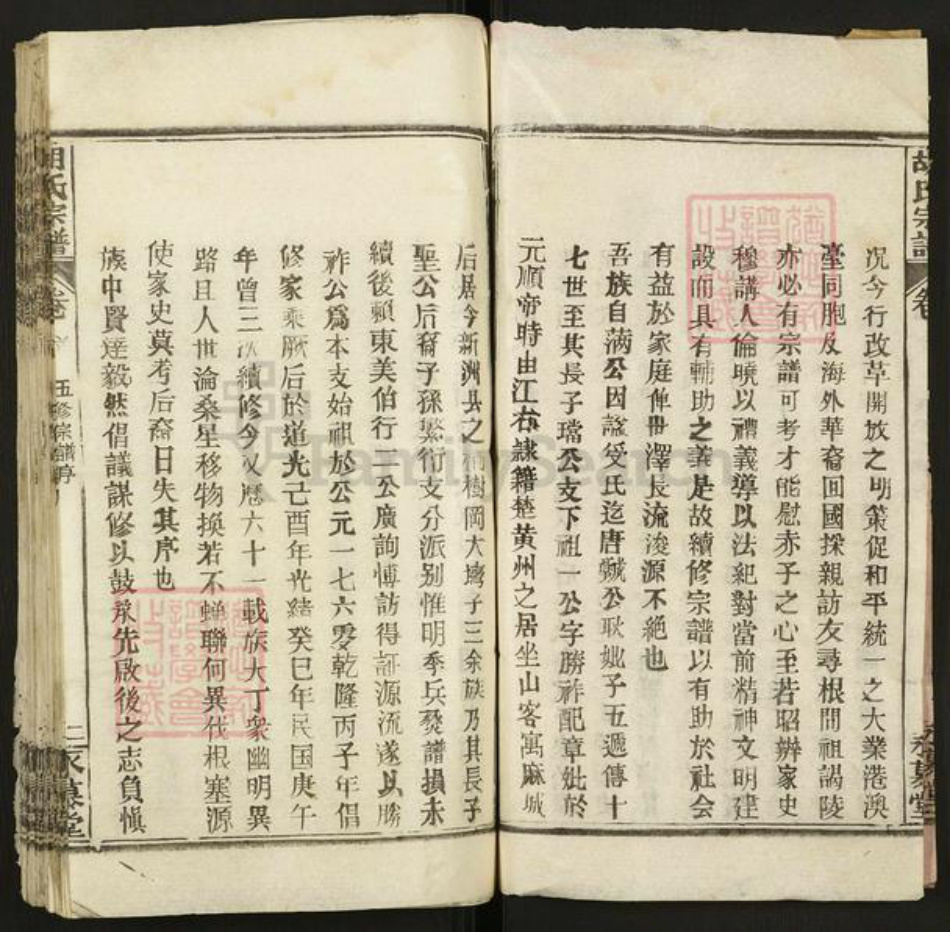 胡氏宗譜
卷
況今行改革開放之明策促和平統一之大業港澳
臺同胞及海外華裔回國探親訪友尋根問祖謁陵
亦必有宗譜可考才能慰赤子之心至若昭辦家史
穆講人倫曉以禮義導以法紀對當前精神文明建
設而具有輔助之義是故續修宗譜以有助於社会
有益於家庭俾冊澤長流浚源不絕也
吾族自满公因諡受氏迄唐虢公耿妣子五遞傳十
七世至其長子璫公支下祖一公字勝祚配章妣於
元順帝時由江右隷籍楚黄州之居坐山客寓麻城
后居今新洲县之柏樹岡大塆子三余族乃其長子
聖公后裔子孫繁衍支分派别惟明季兵燹譜損未
續後賴東美伯行二公廣詢博訪得証源流遂以勝
祚公爲本支始祖於公元一七六零乾隆丙子年倡
修家乘厥后於道光己酉年光緒癸巳年民国庚午
年曾三次續修今又歷六十一載族大丁衆幽明異
路且人世淪桑星移物換若不蝉聯何異伐根塞源
使家史莫考后裔日失其序也
族中賢達毅然倡議謀修以鼓承先啟後之志負慎
胡氏宗譜
卷
五修宗譜序
二
永慕堂
FamilySearch